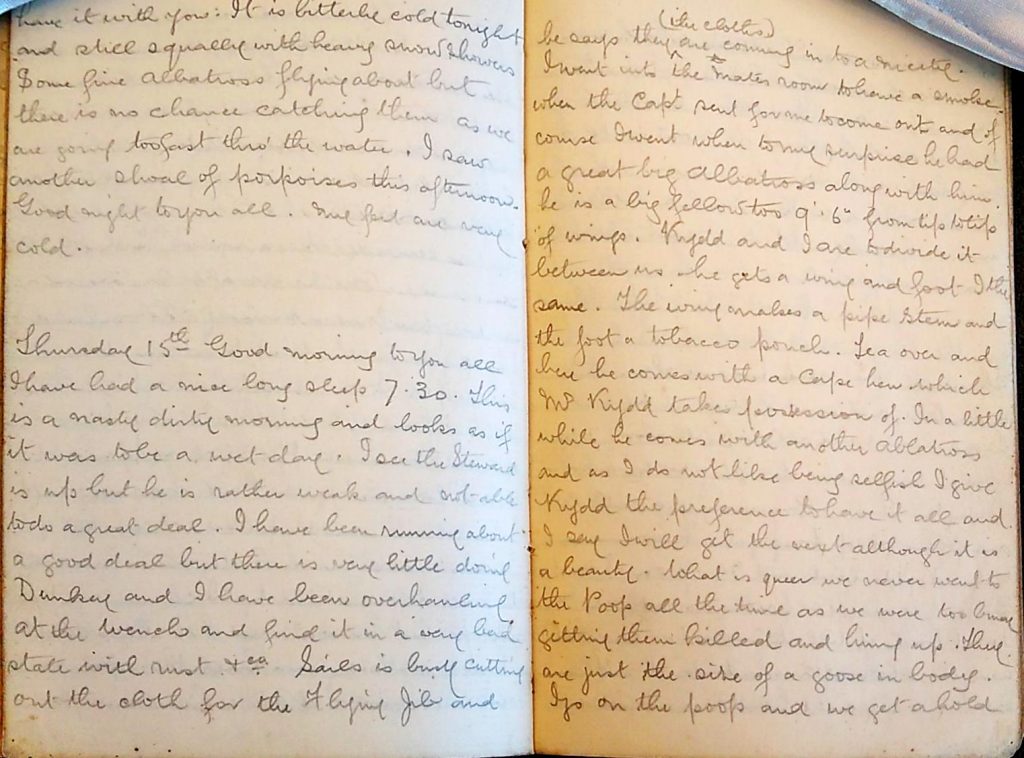 have it with you: It is bitterly cold tonight
and still squally with heavy snow showers
Some fine Albatross flying about but
there is no chance catching them as we
are going too fast thro' the water. I saw
another shoal of porpoises this afternoon.
Good night to you all. My feet are very
cold.
Thursday 15th Good morning to you all
I have had a nice long sleep 7.30. This
is a nasty dirty morning and looks as if
it was to be a wet day. I see the Steward
is up but he is rather weak and not able
to do a great deal. I have been running about
a good deal but there is very little doing
Dunksey and I have been overhauling
at the wench and find it in a very bad
state with rust &ca. Sails is busy cutting
out the cloth for the Flying Jib and
(the cloths)
he says they are coming in to a nicety.
I went into the mates room to have a smoke
when the Capt sent for me to come out and of
course I went when to my surprise he had
a great big Albatross along with him.
he is a big fellow too 9'.6" from tip to tip
of wings. Kydd and I are to divide it
between us he gets a wing and foot I the
same. The wing makes a pipe stem and
the foot a tobacco pouch. Tea over and
here he comes with a Cape hen which
Mr Kydd takes possession of. In a little
while he comes with another Ablatross
and as I do not like being selfish I give
Kydd the preference to have it all and
I say I will get the next although it is
a beauty. What is queer we never went to
the Poop all the time as we were too busy
gitting them killed and hung up. They
are just the size of a goose in body.
I go on the poop and we get a hold